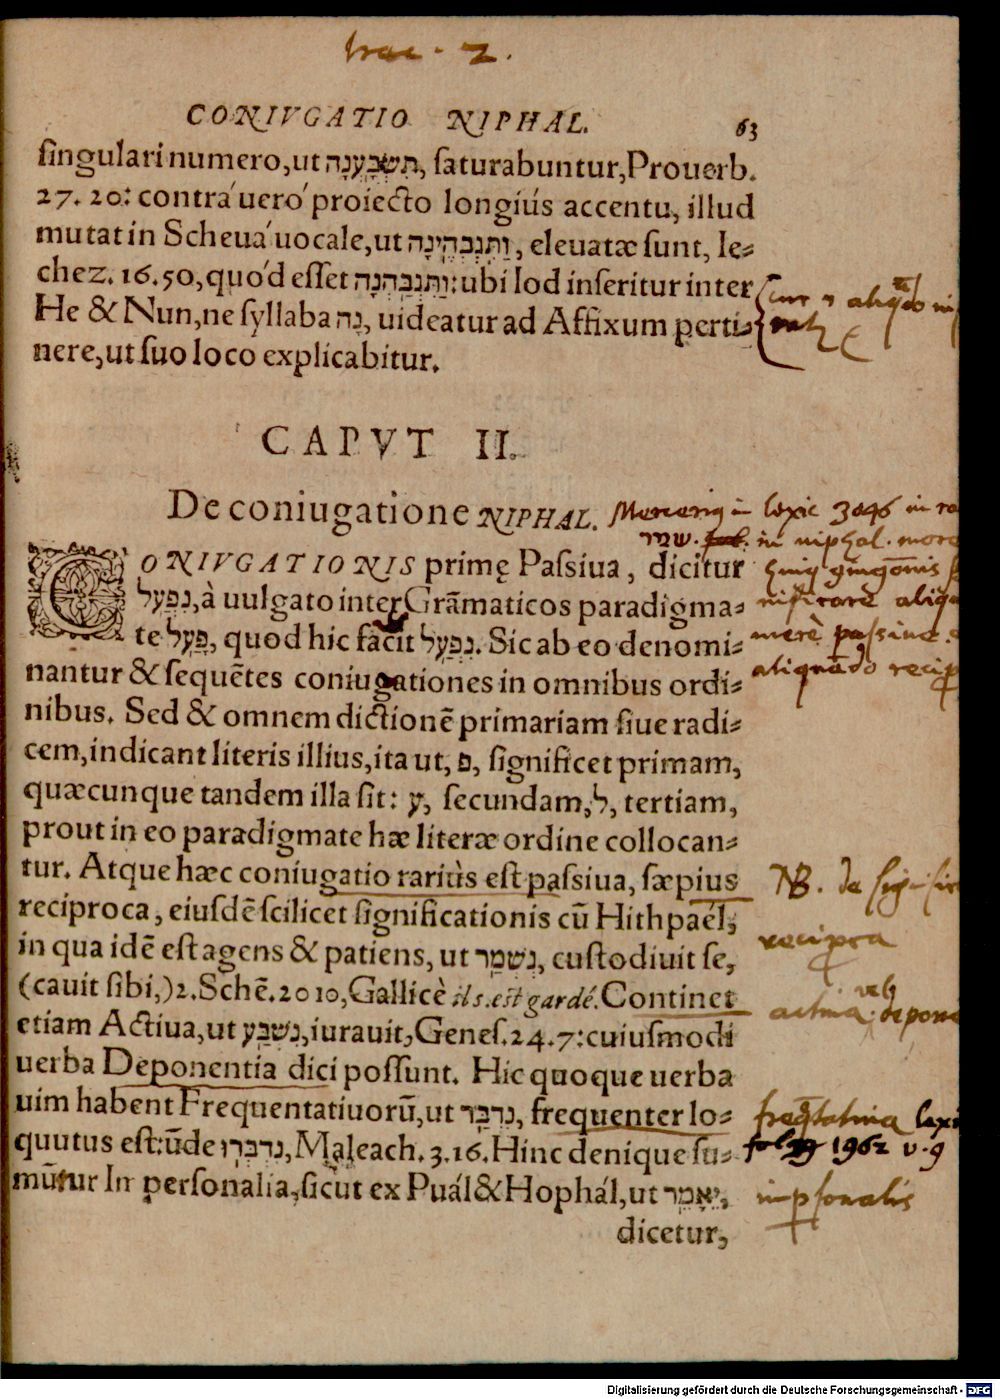 CONIVGATIO NIPHAL. 63
singulari numero, ut תִּשְׂבַּעְנָה, saturabuntur, Prouerb.
27. 20: contrà uerò proiecto longiús accentu, illud
mutat in Scheuà uocale, ut וַתִּגְבְּהֶינָה, eleuatæ sunt, Ie=
chez. 16.50, quòd esset וַתִּגְבַּהְנָה: ubi Iod inseritur inter
He & Nun, ne syllaba נָה, uideatur ad Affixum perti=
nere, ut suo loco explicabitur.
CAPVT II.
De coniugatione NIPHAL.
CONIVGATIONIS primę Passiua, dicitur
נִפְעַל, à uulgato inter Grãmaticos paradigma=
te פָּעַל, quod hic facit נִפְעַל. Sic ab eo denomi=
nantur & sequẽtes coniugationes in omnibus ordi=
nibus. Sed & omnem dictionẽ primariam siue radi=
cem, indicant literis illius, ita ut, פ, significet primam,
quæcunque tandem illa sit: ע, secundam, ל, tertiam,
prout in eo paradigmate hæ literæ ordine collocan=
tur. Atque hæc coniugatio rariùs est passiua, sæpius
reciproca, eiusdẽ scilicet significationis cũ Hithpaél,
in qua idẽ est agens & patiens, ut נִשְׁמַר, custodiuit se,
(cauit sibi,) 2. Schẽ. 20 10, Gallicè il s'est gardé. Continet
etiam Actiua, ut נִשְׁבַּע, iurauit, Genes. 24. 7: cuiusmodi
uerba Deponentia dici possunt. Hic quoque uerba
uim habent Frequentatiuorũ, ut נִדְבַּר, frequenter lo=
quutus est: ũde נִדְבְּרוּ, Maleach. 3. 16. Hinc denique su=
mũtur Impersonalia, sicut ex Puál & Hophál, ut יֵאָמֵר,
dicetur,
2.
in lexic 3046 in
שמר. in niphal.
aliquãdo recip
NB. de
recipca
actiua
1962 v. 9
Digitalisierung gefördert durch die Deutsche Forschungsgemeinschaft - DFG